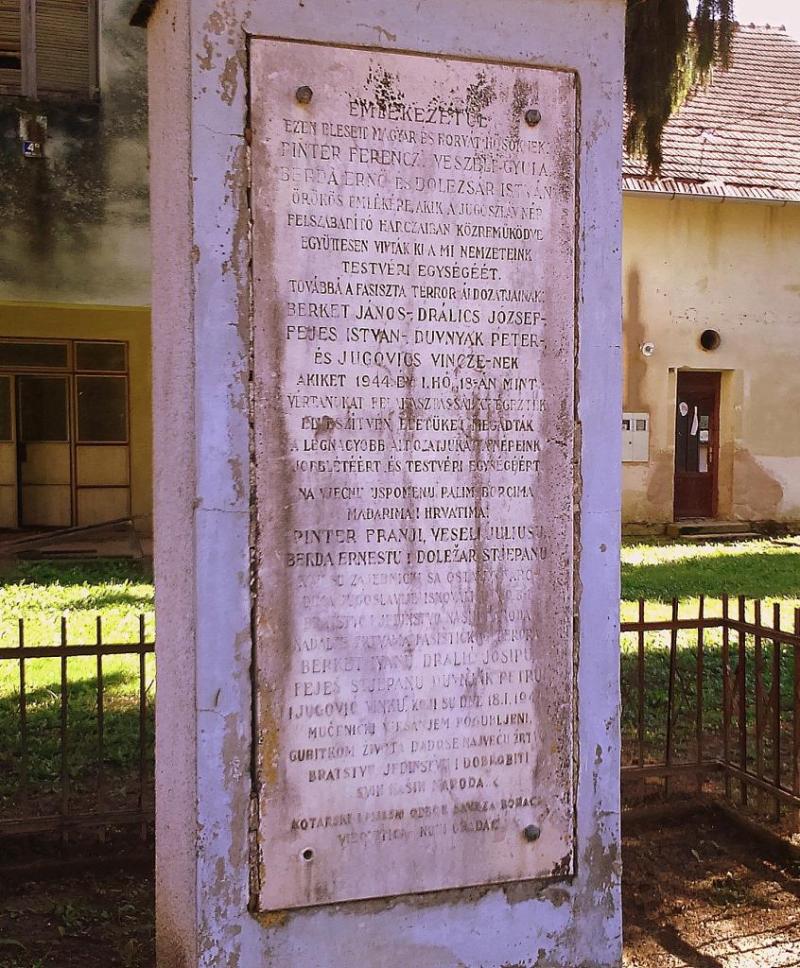 EMLÉKEZETÜL
EZEN ELESETT MAGYAR ÉS HORVÁT HŐSÖKNEK:
PINTÉR FERENCZ, VESZELI GYULA,
BERDA ERNŐ ÉS DOLEZSÁR ISTVÁN
ÖRÖKÖS EMLÉKÉRE, AKIK A JUGOSZLÁV NÉP
FELSZABADÍTÓ HARCZAIBAN KÖZREMŰKÖDVE
EGYÜTTESEN VIVTÁK KI A MI NEMZETEINK
TESTVÉRI EGYSÉGÉÉT.
TOVÁBBÁ A FASISZTA TERROR ÁLDOZATJAINAK:
BERKET JÁNOS-DRÁLICS JÓZSEF-
FEJES ISTVÁN-DUVNYÁK PÉTER-
ÉS JUGOVICS VINCZE-NEK
AKIKET 1944 ÉV I. HÓ 18-ÁN MINT
ÉLETÜKET
A LEGNAGYOBB NÉPEINK
JOBBLÉTÉÉRT ÉS TESTVÉRI EGYSÉGÉÉRT
NA VJEČNU USPOMENU PALIM BORCIMA
MAĐARIMA I HRVATIMA:
PINTER FRANJI, VESELI JULIUSU,
BERDA ERNESTU I DOLEŽAR STJEPANU
KOJI SU ZAJEDNIČKI SA OSTALIM
JUGOSLAVIJE
BRATSTVO I JEDINSTVO NAŠIH NARODA
NADALJE ŽRTVAMA FAŠISTIČKOG TERORA
BERKET IVANU DRALIĆ JOSIPU
FEJEŠ STJEPANU DUVNJAK PETRU
I JUGOVIĆ VINKU, KOJI SU DNE 18.I.19
MUČENIČKI VJEŠANJEM POGUBLJENI,
GUBITKOM ŽIVOTA DADOŠE NAJVEĆU ŽRTVU
BRATSTVU JEDINSTVU I DOBROBITI
SVIH NAŠIH NARODA.
KOTARSKI ODBOR SAVEZA BORACA